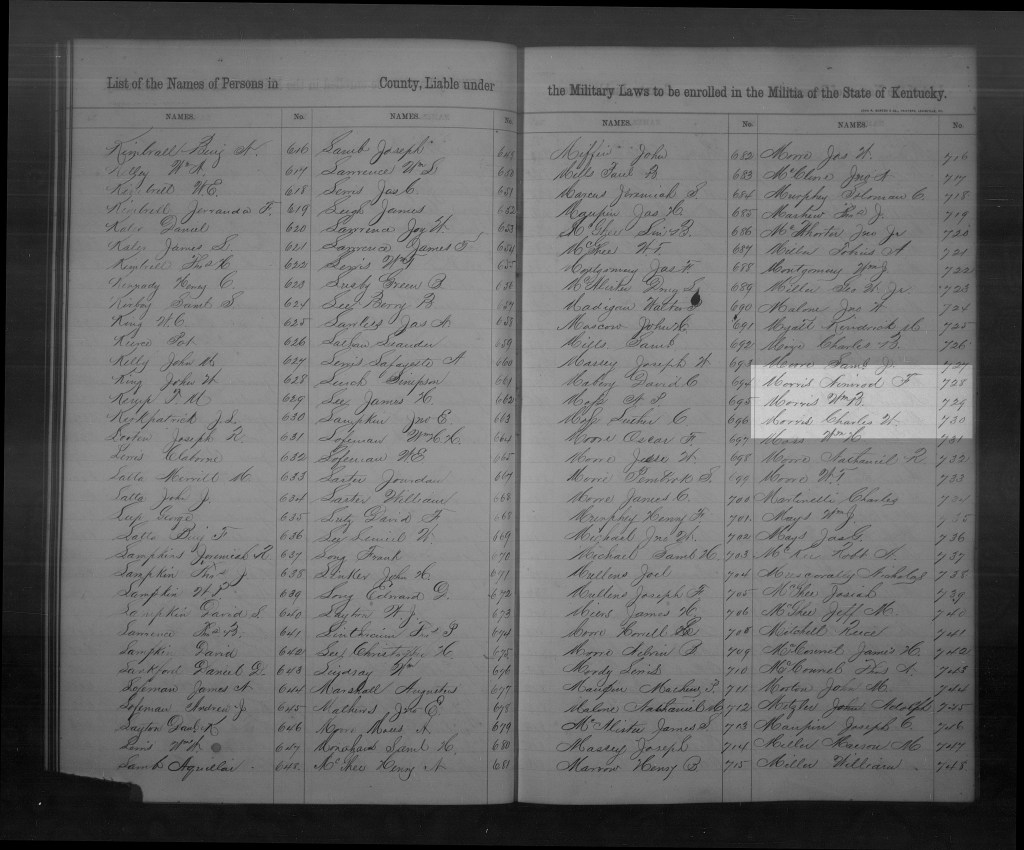 List of the Names of Persons in County, Liable under
the Military Laws to be enrolled in the Militia of the State of Kentucky.
NAMES. No. NAMES. No.
NAMES. No. NAMES. No.
Kimbrall Benj N. 616 Lamb Joseph
Kelley Wm A. 617 Lawrence Wm S 650
Kimbrell W. E. 618 Lewis Jas C. 651
Kimbrell F. 619 Leigh James 652
Katis Daniel 620 Lawrence Joy W 653
Kates James 621 Lawrence James F 654
Kimbrell Thos H 622 Lewis Wm T 655
Kennady Henry C. 623 Lusty Green B 656
Kirby Saml S 624 Lee Berry B 657
King W. C. 625 Jas A 658
Kierce Pat 626 Leander 659
Kelly John M 627 Lewis Lafayette A 660
King John W 628 Leach Simpson 661
Kemp T M 629 Lee James H. 662
Kirkpatrick J. L. 630 Lampkin Jno E. 663
Joseph K. 631 Wm H. H. 664
Lewis Claborne 632 W E 665
Merrill M 633 Lartee Jourdan 667
John J. 634 Larter William 668
George 635 Luty David F 668
Benj F 636 Lee Lemiel W. 669
Lampkins Jeremiah K. 637 Long Frank 670
Lampkin Thos J 638 Linker John H 671
Lampkin W. F. 639 Long Edward D. 672
Lampkin David L 640 Layton W J. 673
Lawrence Thos B. 641 Linthicum Thos P 674
Lampkin David 642 Lee Christopher H 675
Lankford Daniel D. 643 Lindsay Wm 696
James A 644 Marshall Augustus 677
Andrew J. 645 Mathews Jno E. 678
Layton Danl K 646 Moore Moses A. 679
Lewis Wm W 647 Monohan Saml H. 680
Lamb Aquillar 648 McGhee Henry A 681
Miffin John 682 Moore Jas W. 716
Mills Saml B. 683 McClure Jno A 717
Marcus Jeremiah S. 684 Murphy Soloman C. 718
Maupin Jas H. 685 Thos J. 719
McGhee B. 686 McWhorter Jno Jr 720
McGhee W. T. 687 A 721
Montgomery Jas F. 688 Montgomery Wm J 722
689 Miller Geo W. Jr. 723
Madigan Walter 690 Malone Jas W. 724
Moscow John H 691 Myatt Kendrick M 725
Mills Saml 692 Moore Charles B. 726
Massey Joseph W. 693 Moore Saml J. 727
David C 694 Morris Nimrod F 728
A. S. 695 Morris Wm B. 729
Luther C 696 Morris Charles W. 730
Moore Oscar F. 697 Moss Wm H. 731
Moore Jesse W. 698 Moore Nathaniel K. 732
Moore Pembrok S. 199 Moore W. T 733
Moore James C. 700 Martinelli Charles 734
Murphey Henry F. 701 Mays Wm J. 735
Michael Jno W. 702 Mays Jas G. 736
Michael Saml H. 703 McKee Robt A. 737
Mullens Joel 704 Nicholas 738
Mullens Joseph F 705 McGhee Josiah 739
Miers James H. 706 McGhee Jeff M. 740
Moore 708 Mitchell Reece 741
Moore 709 McConnel James H 742
Moody Lewis 710 McConnel Thos A. 743
Maupin P. 711 Morton John M 744
Malone Nathaniel M 712 Adolph 745
McMister James S. 703 Maupin Joseph C. 746
Massey Joseph 714 Miller Marson M 747
Marrow Henry B. 715 Miller William 748